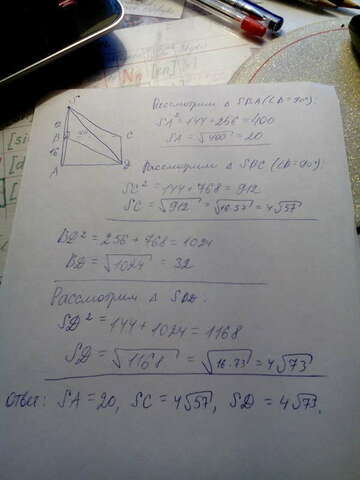 S
B
C
A
D
Рассмотрим Δ SBA (∠B=90°):
SA² = 144+256 = 400
SA = √400 = 20
Рассмотрим Δ SBC (∠B=90°):
SC² = 144 + 768 = 912
SC = √912 = √16·57 = 4√57
BD² = 256 + 768 = 1024
BD = √1024 = 32
Рассмотрим Δ SBD:
SD² = 144 + 1024 = 1168
SD = √1168 = √16·73 = 4√73
Ответ: SA = 20, SC = 4√57, SD = 4√73.